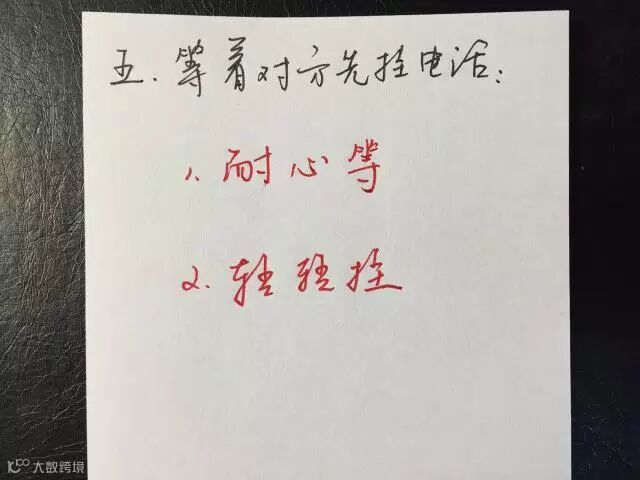 五.等着对方先挂电话:
1.耐心等
2.轻轻挂
大数跨境